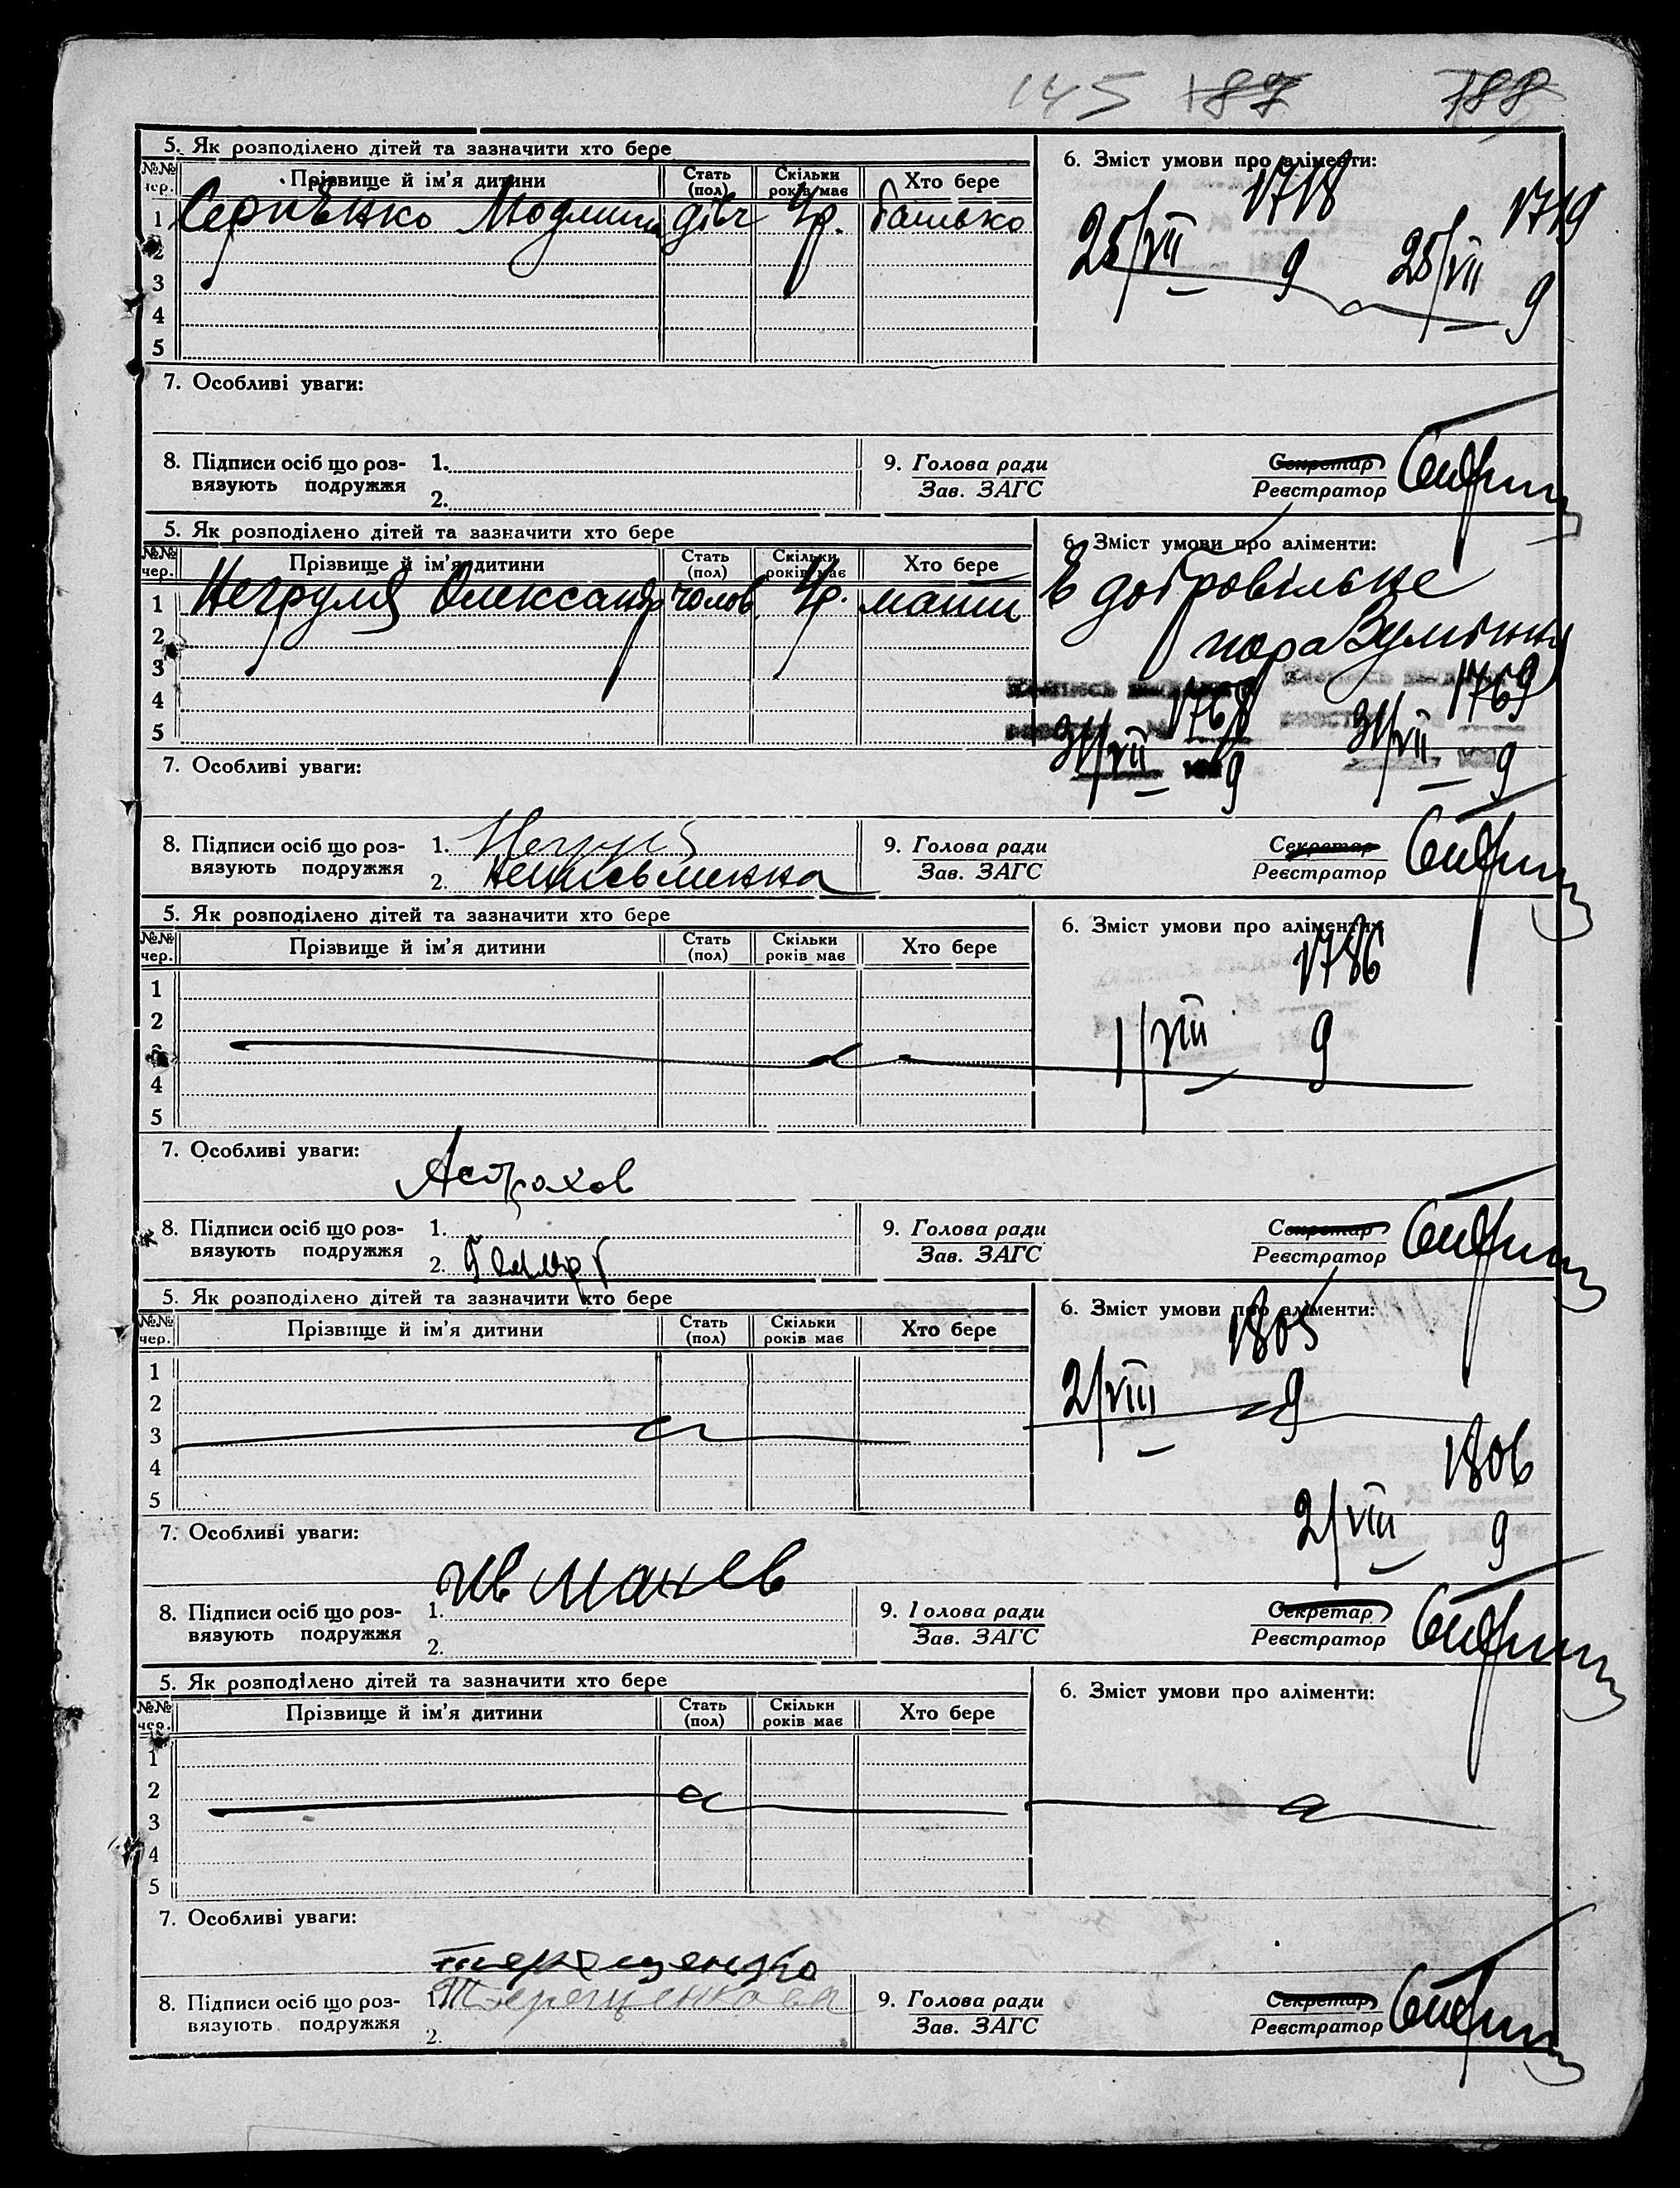 145 187 188
5. Як розподілено дітей та зазначити хто бере
6. Зміст умови про аліменти:
№№ чер. Прізвище й ім'я дитини Стать (пол) Скільки років має Хто бере
1718 1719
1 дівч 4р. батько
25/VII 9 25/VII 9
2
3
4
5
7. Особливі уваги:
8. Підписи осіб що роз-
вязують подружжя
1.
2.
9. Голова ради
Зав. ЗАГС
Секретар
Реєстратор
5. Як розподілено дітей та зазначити хто бере
6. Зміст умови про аліменти:
№№ чер. Прізвище й ім'я дитини Стать (пол) Скільки років має Хто бере
Є добровільне
1 Негруля Олександр чолов. 4р. мати
2
3
4
5
1768 1769
31/VII 9 31/VII 9
7. Особливі уваги:
8. Підписи осіб що роз-
вязують подружжя
1.
2. Неписьменна
9. Голова ради
Зав. ЗАГС
Секретар
Реєстратор
5. Як розподілено дітей та зазначити хто бере
6. Зміст умови про аліменти:
№№ чер. Прізвище й ім'я дитини Стать (пол) Скільки років має Хто бере
1786
1
2
1/VIII 9
4
5
7. Особливі уваги:
Астрахов
8. Підписи осіб що роз-
вязують подружжя
1.
2.
9. Голова ради
Зав. ЗАГС
Секретар
Реєстратор
5. Як розподілено дітей та зазначити хто бере
6. Зміст умови про аліменти:
№№ чер. Прізвище й ім'я дитини Стать (пол) Скільки років має Хто бере
1805
1
2/VIII 9
2
3
1806
4
5
2/VIII 9
7. Особливі уваги:
8. Підписи осіб що роз-
вязують подружжя
1.
2.
9. Голова ради
Зав. ЗАГС
Секретар
Реєстратор
5. Як розподілено дітей та зазначити хто бере
6. Зміст умови про аліменти:
№№ чер. Прізвище й ім'я дитини Стать (пол) Скільки років має Хто бере
1
2
3
4
5
7. Особливі уваги:
Терещенко
8. Підписи осіб що роз-
вязують подружжя
1. Терещенкова
2.
9. Голова ради
Зав. ЗАГС
Секретар
Реєстратор